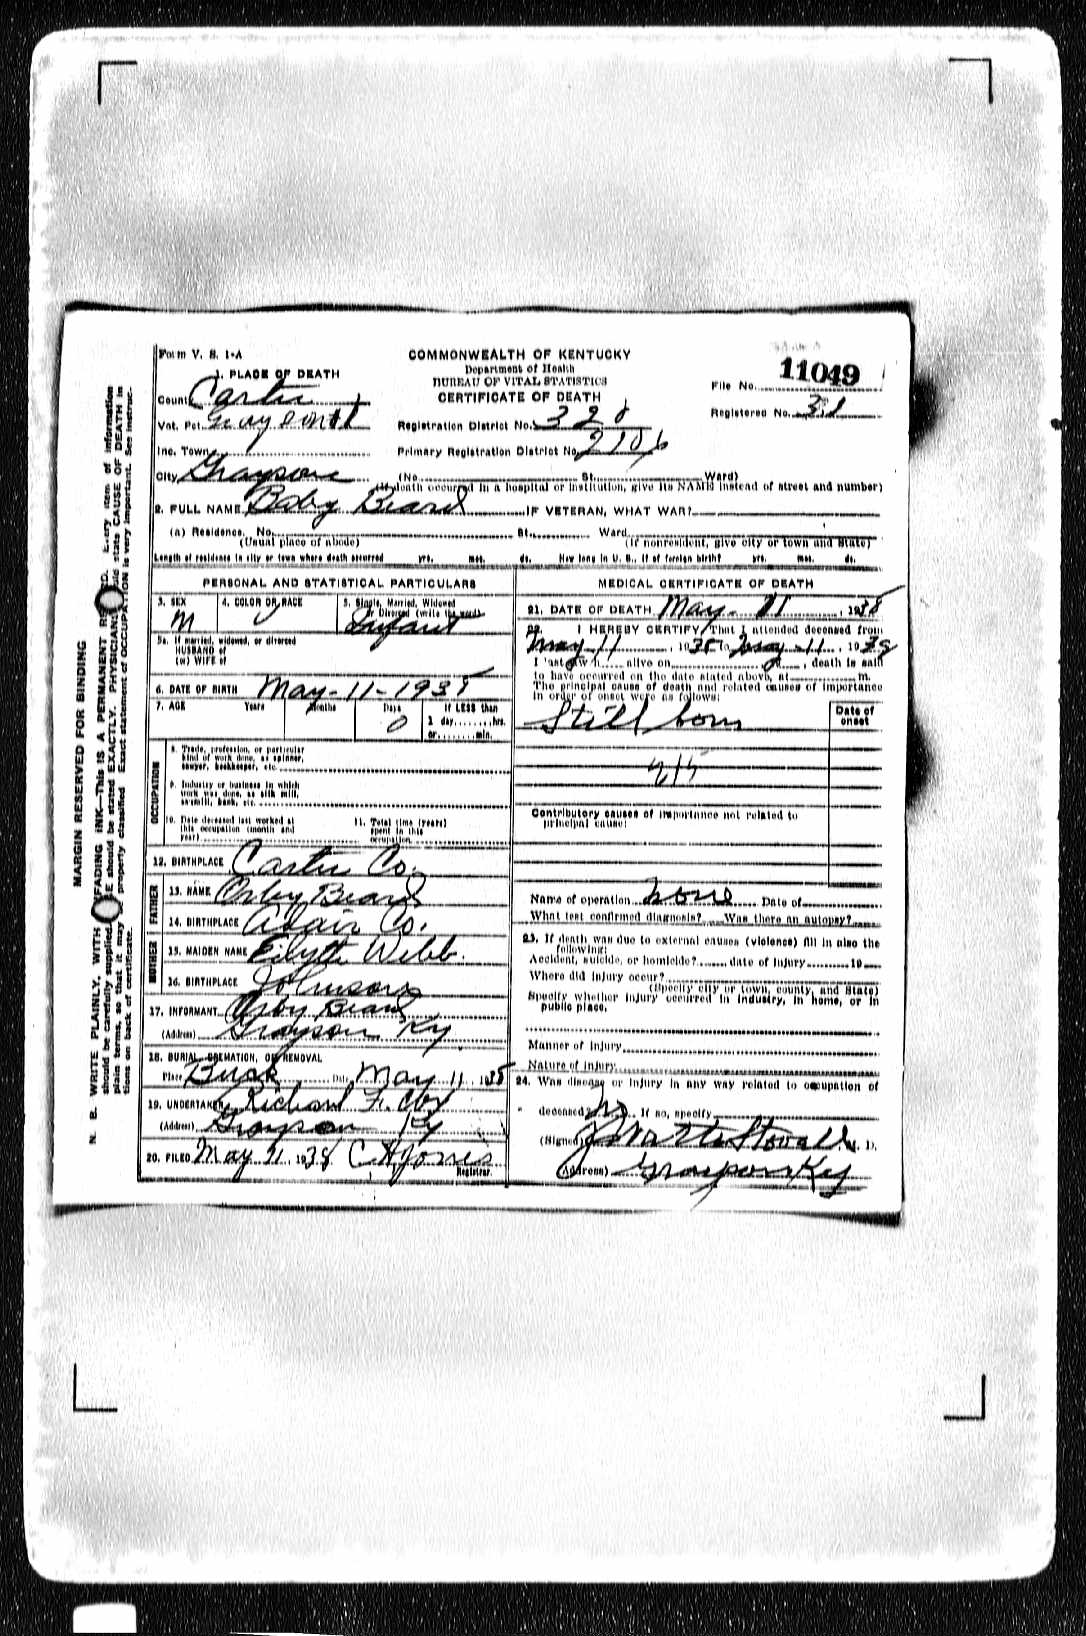 Form V. S. 1-A
COMMONWEALTH OF KENTUCKY
Department of Health
BUREAU OF VITAL STATISTICS
CERTIFICATE OF DEATH
File No. 11049
Registered No.
1. PLACE OF DEATH
County Carter
Vot. Pct.
Registration District No. 328
Inc. Town
Primary Registration District No. 2106
City Grayson (No. St. Ward)
(If death occurred in a hospital or institution, give its NAME instead of street and number)
2. FULL NAME Baby Beard IF VETERAN, WHAT WAR?
(a) Residence. No. St. Ward.
(Usual place of abode) (If nonresident, give city or town and State)
Length of residence in city or town where death occurred yrs. mos. ds. How long in U. S., if of foreign birth? yrs. mos. ds.
PERSONAL AND STATISTICAL PARTICULARS
3. SEX M
4. COLOR OR RACE
5. Single, Married, Widowed or Divorced (write the word) Infant
5a. If married, widowed, or divorced
HUSBAND of
(or) WIFE of
6. DATE OF BIRTH May-11-1938
7. AGE Years Months Days 0 If LESS than 1 day, hrs. or min.
OCCUPATION
8. Trade, profession, or particular kind of work done, as spinner, sawyer, bookkeeper, etc.
9. Industry or business in which work was done, as silk mill, sawmill, bank, etc.
10. Date deceased last worked at this occupation (month and year)
11. Total time (years) spent in this occupation
12. BIRTHPLACE Carter Co.
FATHER
13. NAME Orby Beard
14. BIRTHPLACE Adair Co.
MOTHER
15. MAIDEN NAME Webb.
16. BIRTHPLACE Johnson
17. INFORMANT Orby Beard
(Address) Grayson Ky.
18. BURIAL, CREMATION, OR REMOVAL
Place Date May 11 1938
19. UNDERTAKER Richard F.
(Address) Grayson Ky
20. FILED May 21, 1938 C H Jones
Registrar.
MEDICAL CERTIFICATE OF DEATH
21. DATE OF DEATH May- 11, 1938
22. I HEREBY CERTIFY, That I attended deceased from
May-11, 1938 to May-11, 1938
I last saw h alive on , death is said
to have occurred on the date stated above, at m.
The principal cause of death and related causes of importance
in order of onset were as follows:
Date of onset
Still born
Contributory causes of importance not related to
principal cause:
Name of operation none Date of
What test confirmed diagnosis? Was there an autopsy?
23. If death was due to external causes (violence) fill in also the
following:
Accident, suicide, or homicide? date of injury 19
Where did injury occur?
(Specify city or town, county, and State)
Specify whether injury occurred in industry, in home, or in
public place.
Manner of injury
Nature of injury
24. Was disease or injury in any way related to occupation of
deceased? No If so, specify
(Signed) Stovall M. D.
(Address) Grayson Ky
MARGIN RESERVED FOR BINDING
N. B. WRITE PLAINLY, WITH FADING INK—THIS IS A PERMANENT Every item of information
should be carefully supplied. should be stated EXACTLY. PHYSICIANS state CAUSE OF DEATH in
plain terms, so that it may properly classified Exact statement of OCCUPATION is very important. See instruc-
tions on back of certificate.